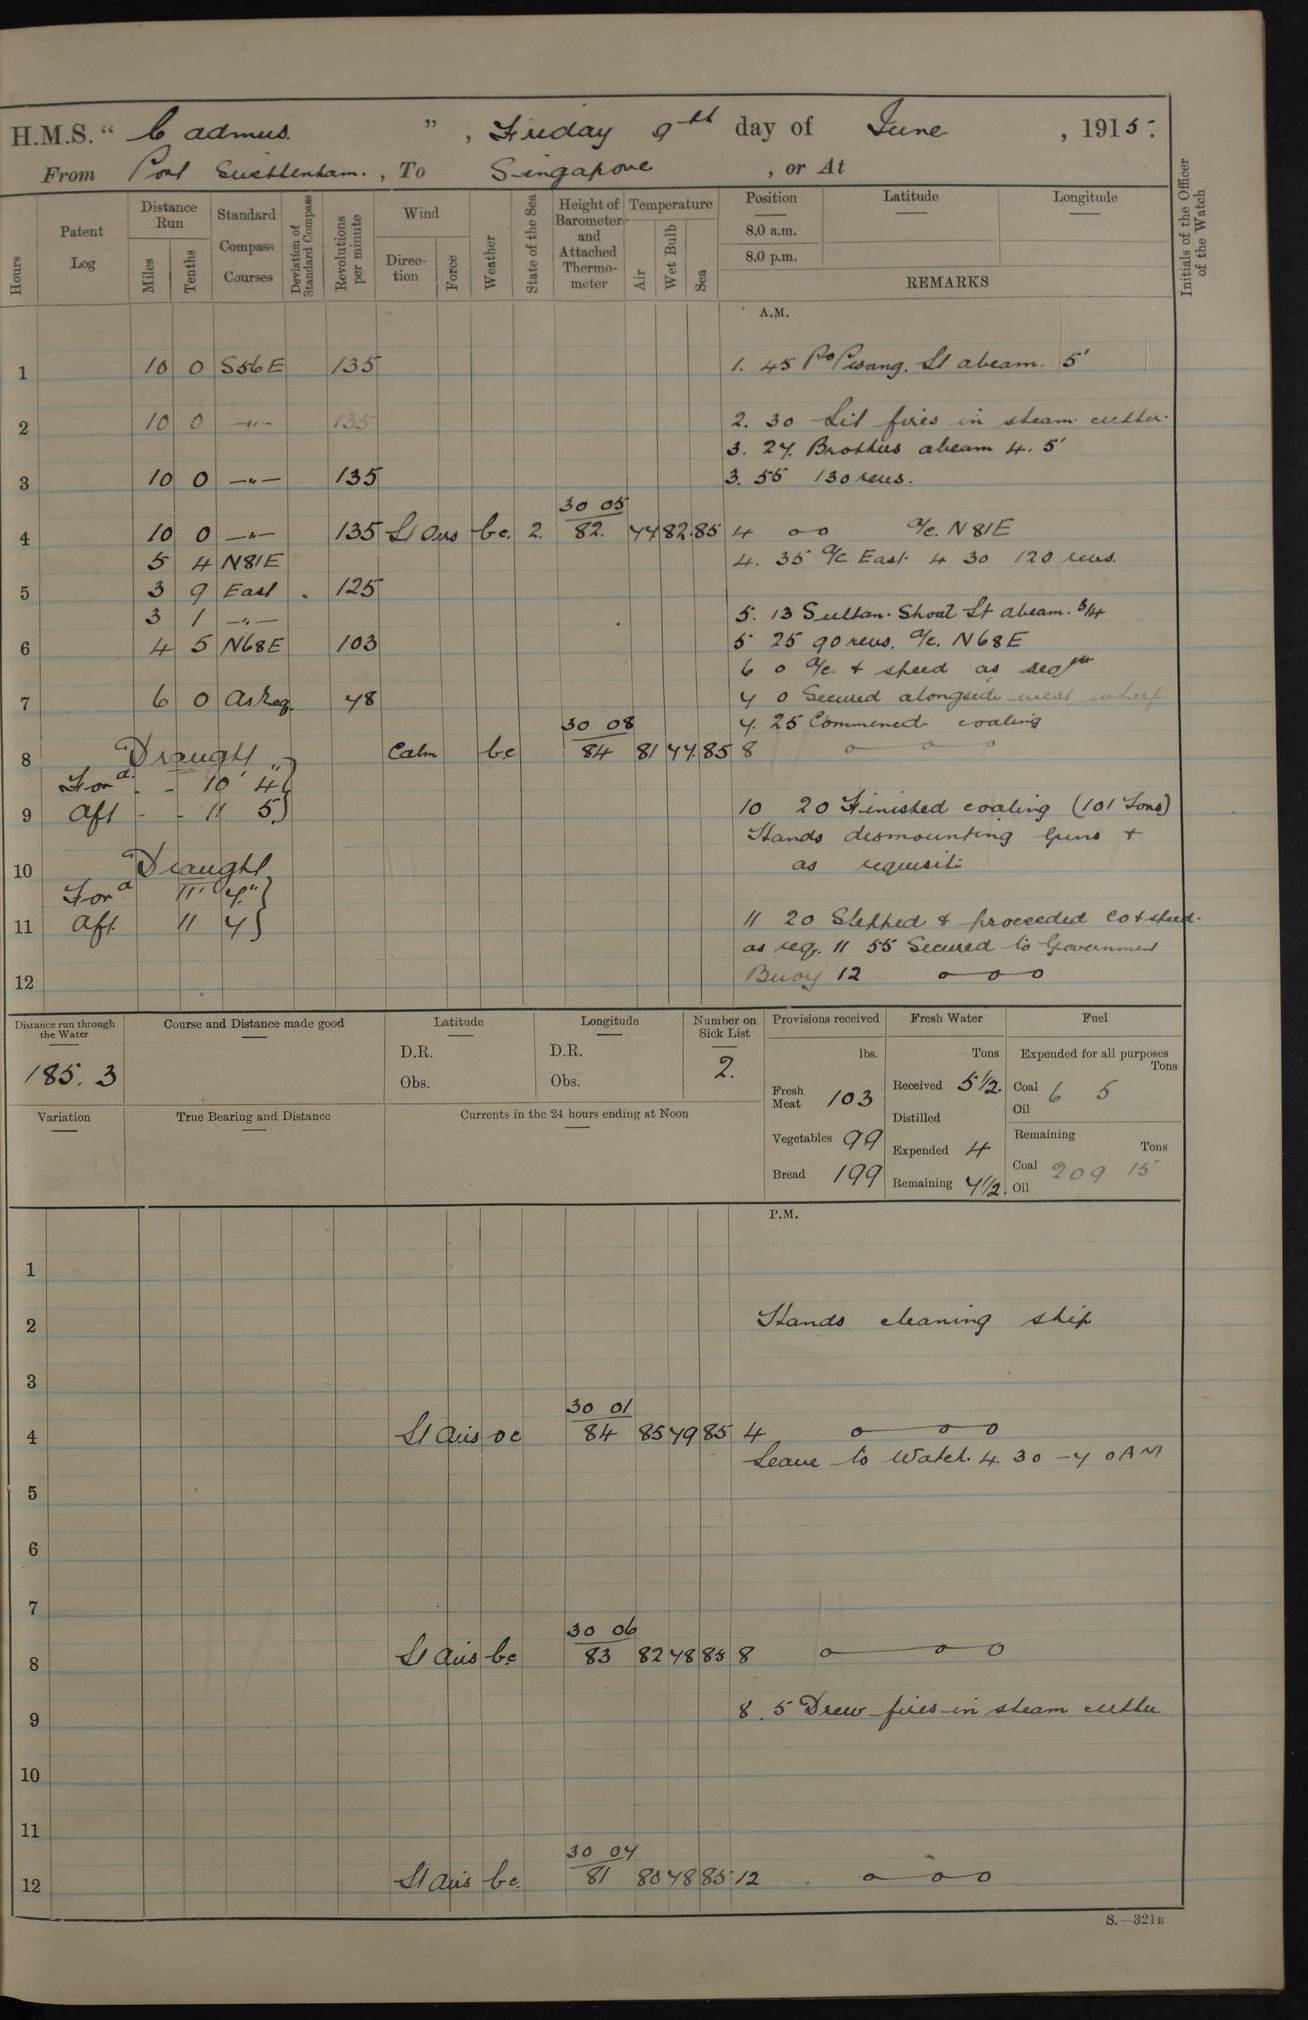 H.M.S. " Cadmus. " , Friday 9th day of June , 1915.
From Port Swettenham. , To Singapore , or At
Hours
Patent Log
Distance Run
Miles
Tenths
Standard Compass Courses
Deviation of Standard Compass
Revolutions per minute
Wind
Direction
Force
Weather
State of the Sea
Height of Barometer and Attached Thermometer
Temperature
Air
Wet Bulb
Sea
Position
8.0 a.m.
8.0 p.m.
Latitude
Longitude
REMARKS
Initials of the Officer of the Watch
A.M.
1 10 0 S56E 135 1. 45 Po Pisang. Lt abeam. 5'
2 10 0 -"- 135 2. 30 Lit fires in steam cutter.
3. 27. Brothers abeam 4. 5'
3 10 0 -"- 135 3. 55 130 revs.
30 05
4 10 0 -"- 135 Lt airs bc. 2. 82. 77 82. 85 4 o-o a/c. N81E
5 4 N81E 4. 35 a/c East 4 30 120 revs.
5 3 9 East 125
3 1 -"- 5. 13 Sultan Shoal Lt abeam. 3/4
6 4 5 N68E 103 5 25 90 revs. a/c. N68E
6 0 a/c. + speed as req
7 6 0 As req. 48 7 0 Secured alongside west wharf
30 08 7. 25 Commenced coaling
8 Draught Calm bc 84 81 77. 85 8 o o o
For'd. - - 10' 4"
9 Aft - - 11 5. 10 20 Finished coaling (101 Tons)
Hands dismounting Guns +
10 Draught as requisite
For'd 11' 7."
11 Aft. 11 7 11 20 Slipped & proceeded Co + speed.
as req. 11 55 Secured to Government
12 Buoy 12 o-o-o
Distance run through the Water
185. 3
Course and Distance made good
Latitude
D.R.
Obs.
Longitude
D.R.
Obs.
Number on Sick List
2.
Provisions received
lbs.
Fresh Meat 103
Vegetables 99
Bread 199
Fresh Water
Tons
Received 5 1/2.
Distilled
Expended 4
Remaining 7 1/2.
Fuel
Expended for all purposes
Tons
Coal 6 5
Oil
Remaining
Tons
Coal 209 15
Oil
Variation
True Bearing and Distance
Currents in the 24 hours ending at Noon
P.M.
1
2 Hands cleaning ship
3
30 01
4 Lt airs oc 84 85 79 85 4 o-o-o
Leave to Watch. 4. 30 - 7 0 AM
5
6
7
30 06
8 Lt airs bc 83 82 78 85 8 o-o-o
9 8. 5 Drew fires in steam cutter
10
11
30 07
12 Lt airs bc. 81 80 78 85 12 o-o-o
S.—321B